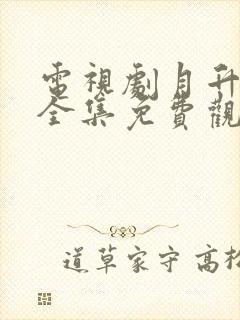 電視劇月升
全集免費觀
道草家守 高松